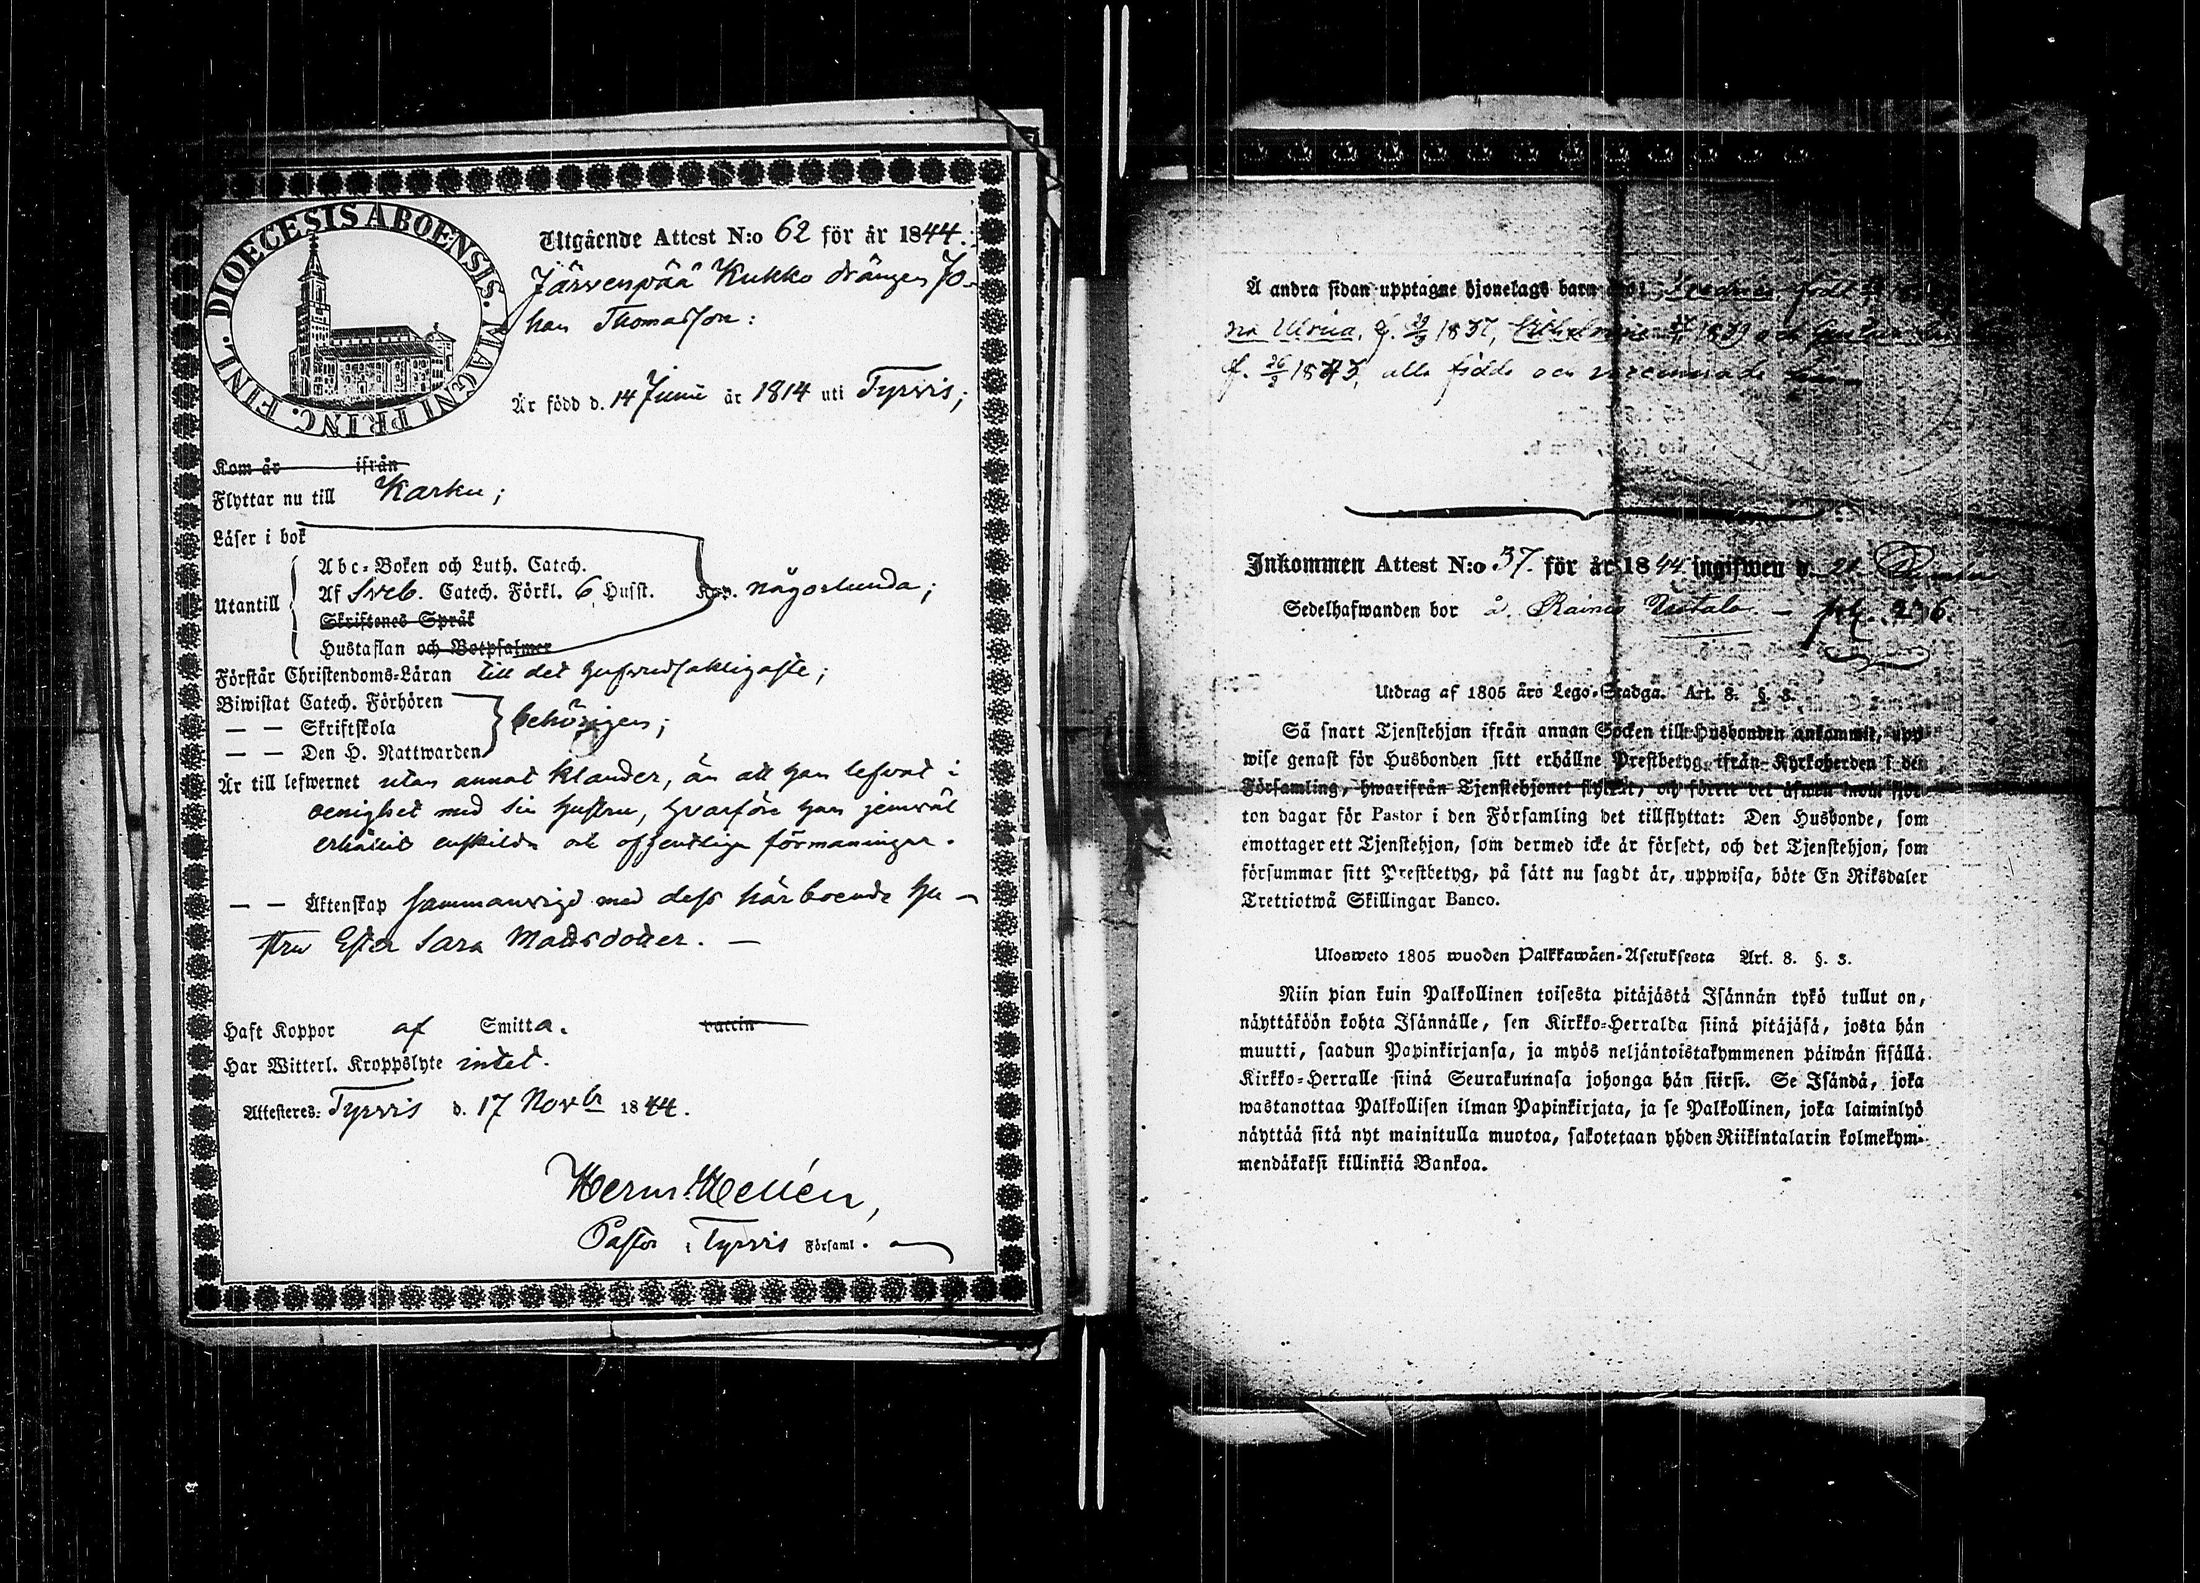 DIOECESIS ABOENSIS. MAGNI PRINC. FINL.
Utgående Attest N:o 62 för år 1844.
Järvenpää Kukko drängen Jo-
han Thomasson:
Är född d. 14 Junii år 1814 uti Tyrvis;
Kom år ifrån
Flyttar nu till Karku;
Läser i bok
Utantill
Abc-Boken och Luth. Catech.
Af Sveb. Catech. Förkl. 6 Husst. någorlunda;
Skriftenes Språk
Hustaflan och Botpsalmer
Förstår Christendoms-Läran till det hufvudsakligaste;
Biwistat Catech. Förhören
— — Skriftskola behörigen;
— — Den H. Nattwarden
Är till lefwernet utan annat klander, än att han lefvat i
oenighet med sin hustru, hvarföre han jemväl
erhållit enskilda och offentliga förmaningar.
— — Äktenskap sammanvigd med dess härboende hu-
stru Ester Sara Mattsdotter. —
Haft Koppor af Smitta. vaccin
Har Witterl. Kroppslyte intet.
Attesteras: Tyrvis d. 17 Novbr 1844.
Herm. Hellén,
Pastor i Tyrvis Församl.
Å andra sidan upptagne hjonelags barn född
na Ulrica, f. 1837, och
f. 26/3 1843, alla födde och vaccinerade
Inkommen Attest N:o 37. för år 1844 ingifwen d. 21
Sedelhafwanden bor å Rainio 236.
Utdrag af 1805 års Lego-Stadga. Art. 8. §. 3.
Så snart Tjenstehjon ifrån annan Socken till Husbonden ankommit, upp-
wise genast för Husbonden sitt erhållne Prestbetyg ifrån Kyrkoherden i den
Församling, hwarifrån Tjenstehjonet flyttat, och förete det äfwen inom fjor-
ton dagar för Pastor i den Församling det tillflyttat: Den Husbonde, som
emottager ett Tjenstehjon, som dermed icke är försedt, och det Tjenstehjon, som
försummar sitt Prestbetyg, på sätt nu sagdt är, uppwisa, böte En Riksdaler
Trettiotwå Skillingar Banco.
Ulosweto 1805 wuoden Palkkawäen-Asetuksesta Art. 8. §. 3.
Niin pian kuin Palkollinen toisesta pitäjästä Isännän tykö tullut on,
näyttäköön kohta Isännälle, sen Kirkko-Herralda siinä pitäjäsä, josta hän
muutti, saadun Papinkirjansa, ja myös neljäntoistakymmenen päiwän sisällä
Kirkko-Herralle siinä Seurakunnasa johonga hän siirsi. Se Isändä, joka
wastanottaa Palkollisen ilman Papinkirjata, ja se Palkollinen, joka laiminlyö
näyttää sitä nyt mainitulla muotoa, sakotetaan yhden Riikintalarin kolmekym-
mendäkaksi killinkiä Bankoa.